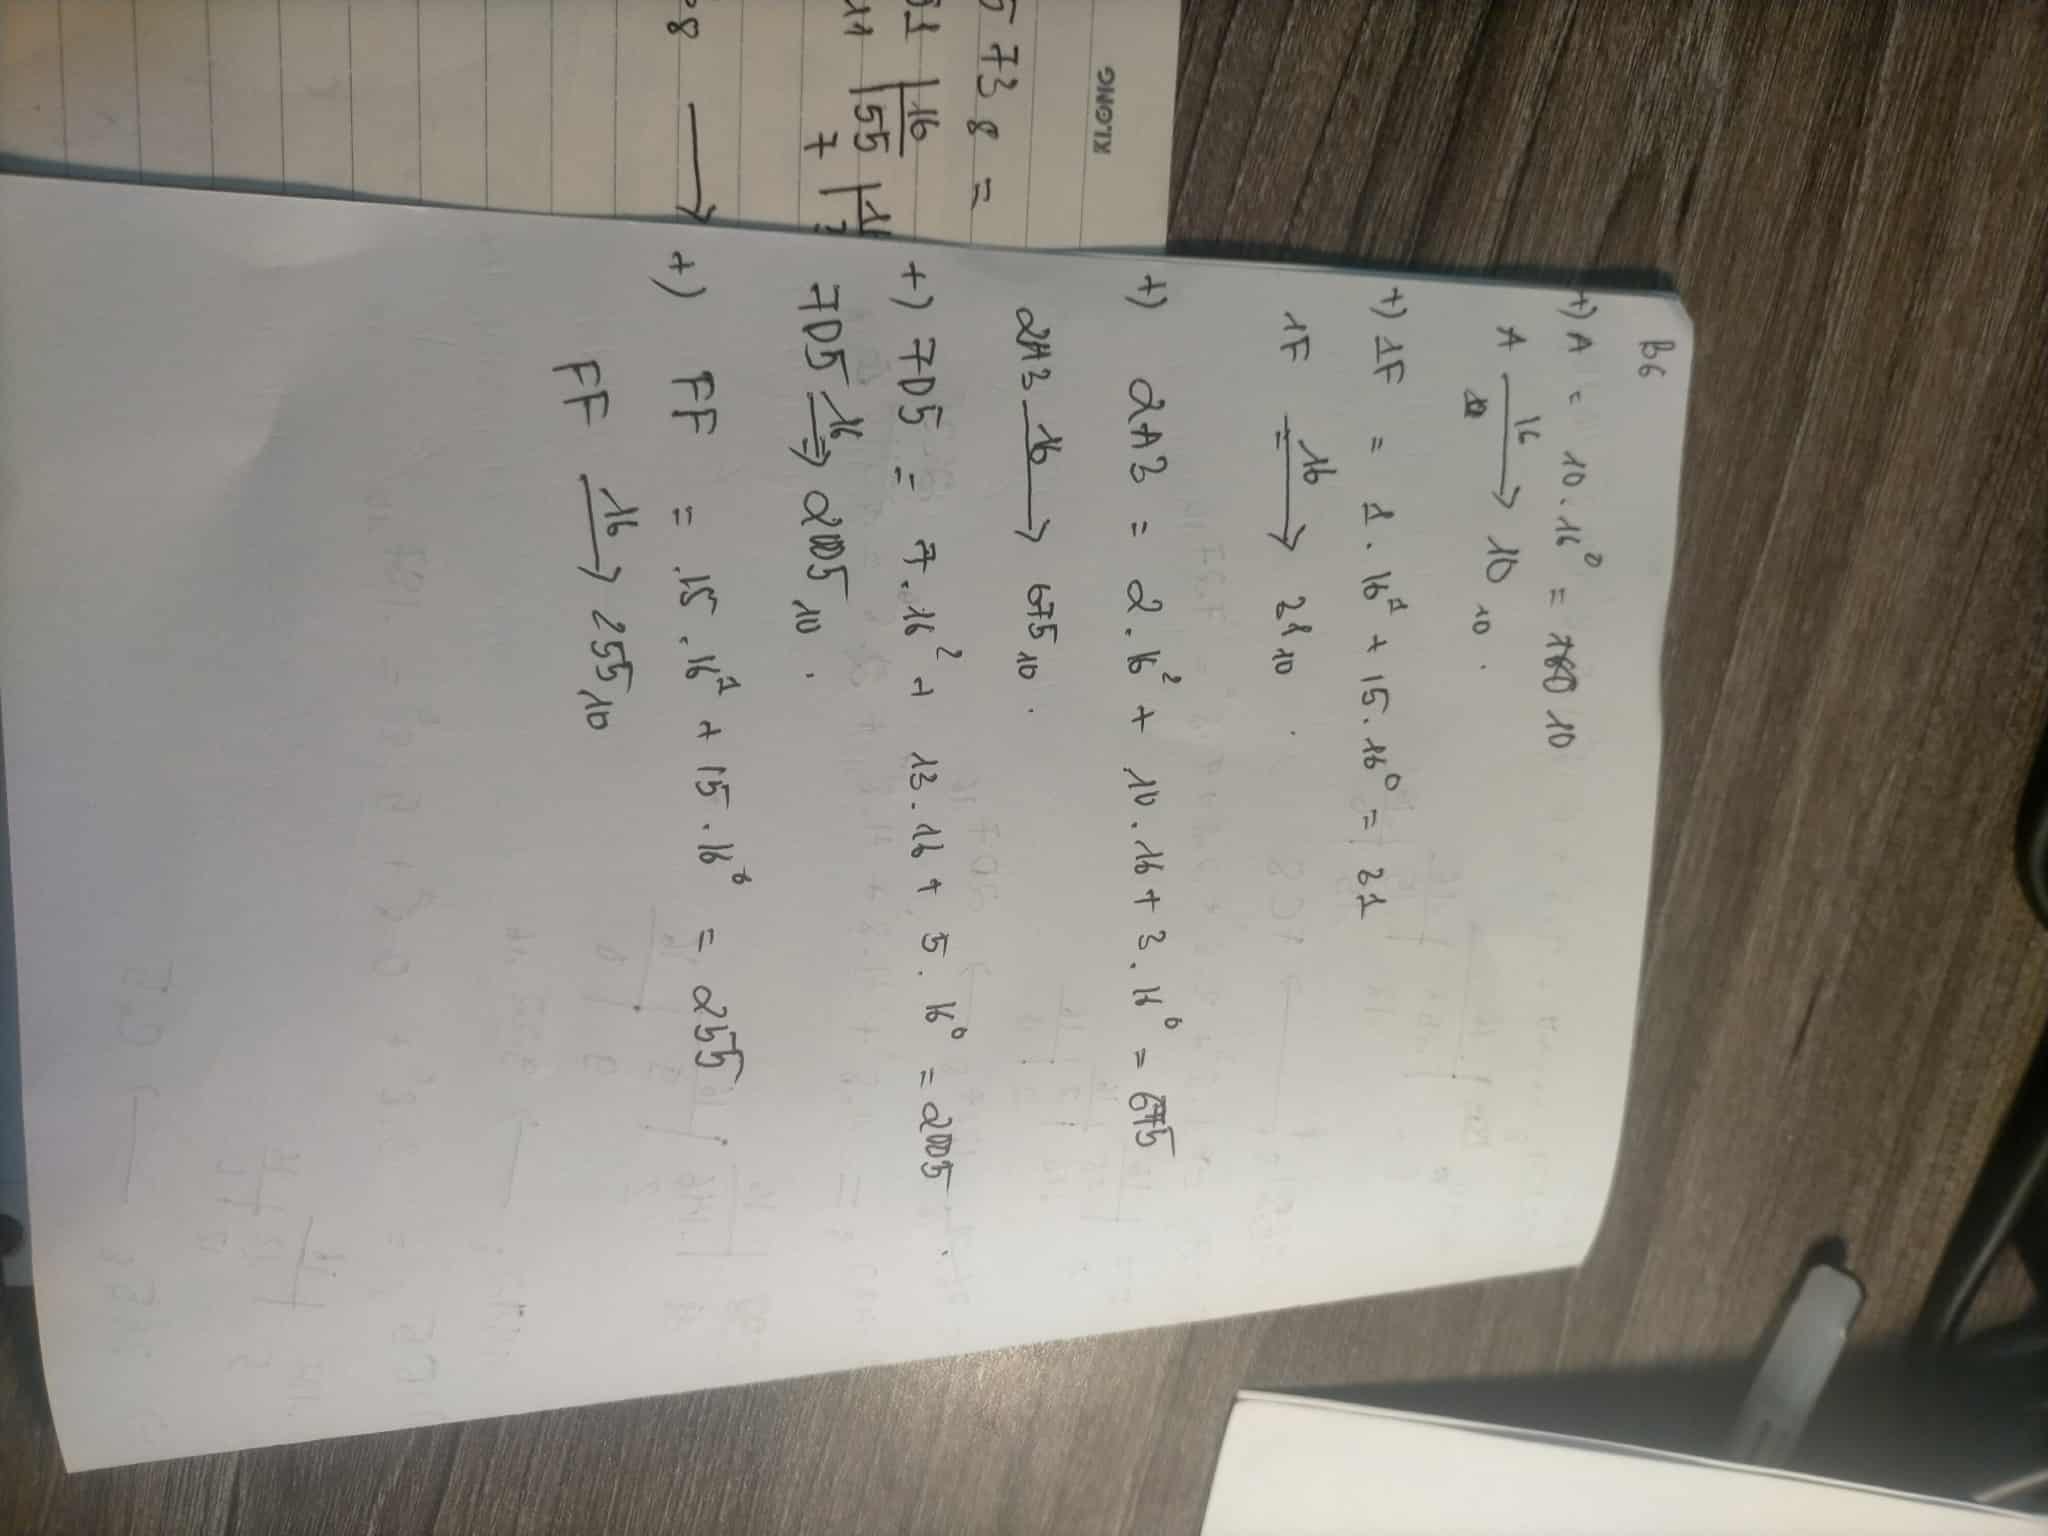 B6
+) A = 10.16⁰ = 10
A 16→ 10 10.
+) 1F = 1.16¹ + 15.16⁰ = 21
1F 16→ 21 10.
+) 2A3 = 2.16² + 10.16 + 3.16⁰ = 675
2A3 16→ 675 10.
+) 7D5 = 7.16² + 13.16 + 5.16⁰ = 2005.
7D5 16→ 2005 10.
+) FF = 15.16¹ + 15.16⁰ = 255
FF 16→ 255 10
KLONG
573 8 =
16
11 55
7
8 →